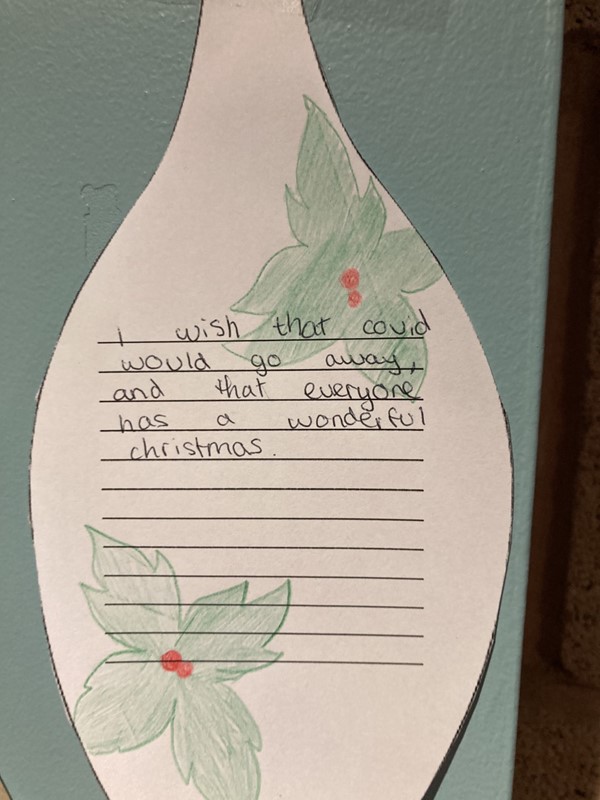 i wish that covid
would go away,
and that everyone
has a wonderful
christmas.